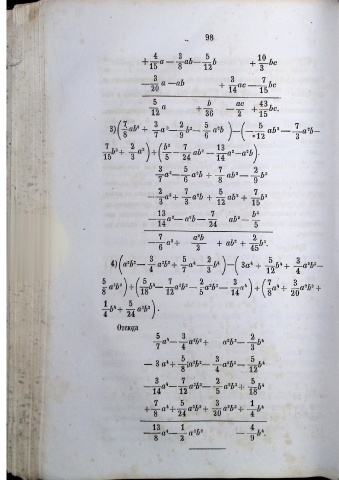 98
+ 4/15 a − 3/8 ab − 5/12 b + 10/3 bc
3/20 a − ab + 3/14 ac − 7/15 bc
5/12 a + b/36 − ac/2 + 43/15 bc.
3) (7/8 ab² + 3/7 a³ − 2/9 b³ − 5/6 a²b) − (− 5/12 ab² − 7/3 a²b −
7/15 b³ + 2/3 a³) + (b³/5 − 7/24 ab² − 13/14 a³ − a²b)
3/7 a³ − 5/6 a²b + 7/8 ab² − 2/9 b³
− 2/3 a³ + 7/3 a²b + 5/12 ab² + 7/15 b³
− 13/14 a³ − a²b − 7/24 ab² − b³/5
− 7/6 a³ + a²b/2 + ab² + 2/45 b³.
4) (a²b² − 3/4 a³b² + 5/7 a⁴ − 2/3 b⁴) − (3a⁴ + 5/12 b⁴ + 3/4 a²b² −
5/8 a³b²) + (5/18 b⁴ − 7/12 a³b² − 2/5 a²b² − 3/14 a⁴) + (7/8 a⁴ + 3/20 a²b² +
1/4 b⁴ + 5/24 a³b²).
Отсюда
5/7 a⁴ − 3/4 a³b² + a²b² − 2/3 b⁴
− 3 a⁴ + 5/8 a³b² − 3/4 a²b² − 5/12 b⁴
− 3/14 a⁴ − 7/12 a³b² − 2/5 a²b² + 5/18 b⁴
+ 7/8 a⁴ + 5/24 a³b² + 3/20 a²b² + 1/4 b⁴
− 13/8 a⁴ − 1/2 a³b² − 4/9 b⁴.